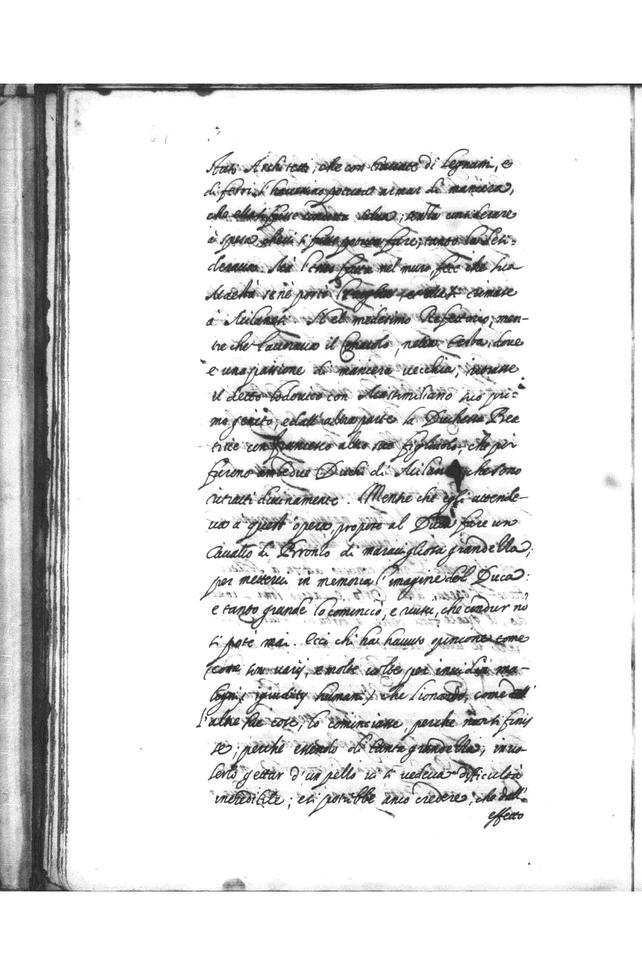 stato Architetti, che con travate di legnami, e
di ferri, l'havevano potuta armar di maniera,
che ella si fosse condotta salva; senza considerare
a spesa che vi si fusse potuta fare; tanto la desi-
derava. Mà l'esser fatta nel muro, fece che sua
Maestà se ne portò la voglia, et ella si rimase
à Milanesi. Nel medesimo Refettorio, men-
tre che lavorava il Cenacolo, nella testa, dove
è una passione di maniera vecchia, ritrasse
il detto Lodovico con Massimiliano suo pri-
mo genito; e dall'altra parte la Duchessa Bea
trice con Francesco altro suo figliuolo, che poi
furono ambedue Duchi di Milano, che sono
ritratti divinamente. Mentre che egli attende-
va a quest'opera, propose al Duca fare un
Cavallo di Bronzo di maravigliosa grandezza,
per mettervi in memoria l'imagine del Duca:
e tanto grande lo cominciò, e riuscì, che condur nõ
si potè mai. Ecci chi ha havuto opinione come
son varij, e molte volte per invidia ma-
ligni i giuditij humani) che Lionardo, come
l'altre sue cose, lo cominciasse, perche non si finis
se; perchè essendo di tanta grandezza, in vo
lerlo gettar d'un pezzo vi si vedeva difficultà
incredibile; e si potrebbe anco credere, che dall'
effetto